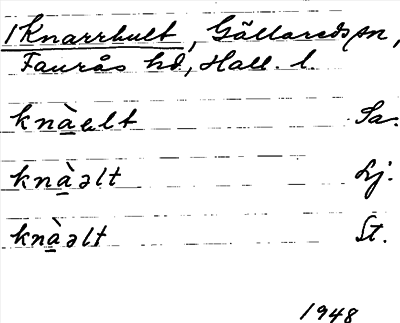 1 Knarrhult, Gällareds sn,
Faurås hd, Hall. l.
knàelt Sa.
knàəlt Lj.
knàəlt St.
1948